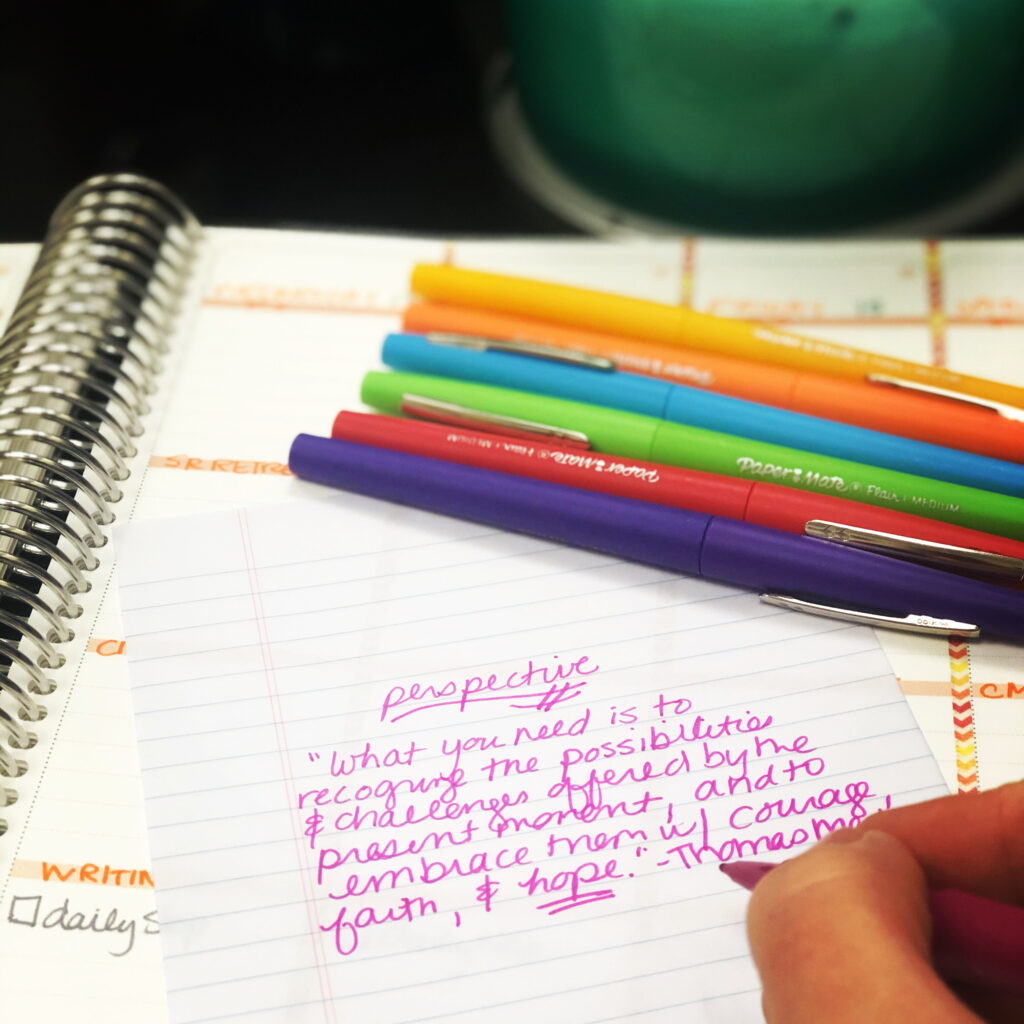 SR RETRO
PAPER MATE
PAPER MATE ® Flair | MEDIUM
PAPER MATE ® Flair | MEDIUM
CM
perspective
"What you need is to
recognize the possibilities
& challenges offered by the
present moment, and to
embrace them w/ courage,
faith, & hope." -Thomas
WRITIN
daily S